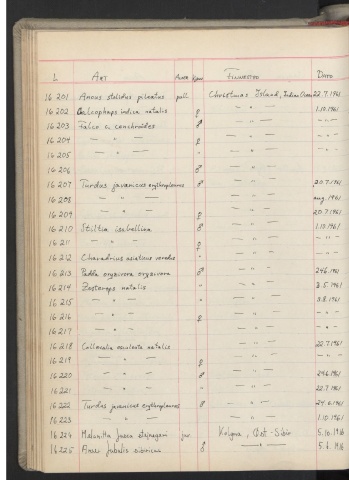 L Art Kjønn Finnested Dato
16 201 Anous stolidus pileatus pull. Christmas Island, Indian Ocean 22.7.1961
16 202 Calcophaps indica natalis ♀ — " — 1.10.1961
16 203 Falco c. cenchroides ♂ — " — — " —
16 204 — " — ♀ — " — — " —
16 205 — " — " — " — — " —
16 206 ♂ — " — — " —
16 207 Turdus javanicus erythropleurus ♂ — " — 20.7.1961
16 208 — " — — " — aug. 1961
16 209 — " — ♀ — " — 20.7.1961
16 210 Stiltia isabellina ♂ — " — 1.10.1961
16 211 — " — ♀ — " — — " —
16 212 Charadrius asiaticus veredus " — " — — " —
16 213 Padda oryzivora oryzivora ♂ — " — 24.6.1961
16 214 Zosterops natalis " — " — 3.5.1961
16 215 — " — " — " — 3.8.1961
16 216 — " — ♀ — " — — " —
16 217 — " — — " — — " —
16 218 Collocalia esculenta natalis — " — 22.7.1961
16 219 — " — ♀ — " — — " —
16 220 — " — ♂ — " — 29.6.1961
16 221 — " — " — " — 22.7.1961
16 222 Turdus javanicus erythropleurus ♂ — " — 24.6.1961
16 223 — " — — " — 1.10.1961
16 224 Melanitta fusca stejnegeri juv. Kolyma, Øst-Sibir 5.10.1916
16 225 Anser fabalis sibiricus ♂ — " — 5.6.1916